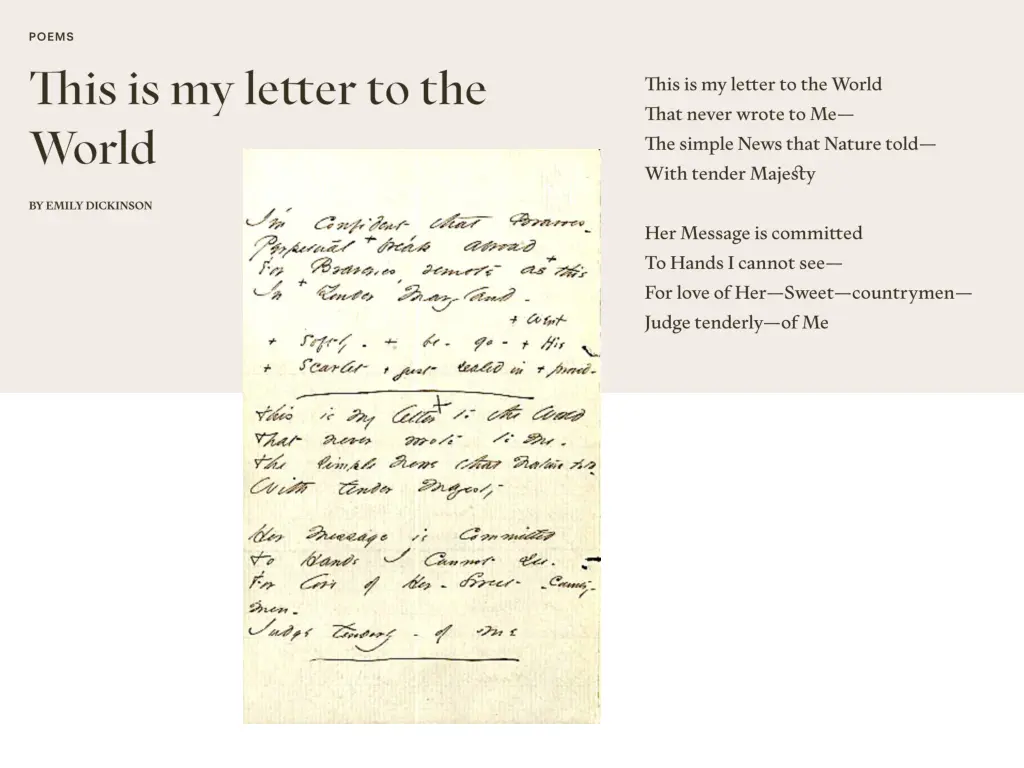 POEMS
This is my letter to the
World
BY EMILY DICKINSON
I'm Confident that Bravoes -
Perpetual + break abroad
For Braveries remote as + this
In + Yonder Maryland -
+ went
+ Softly - + be - go - + His
+ Scarlet + just sealed in + proud -
This is my letter to the World
That never wrote to Me -
The simple News that Nature told
With tender Majesty
Her Message is Committed
To Hands I Cannot see -
For love of Her - Sweet - Country-
men -
Judge tenderly - of Me
This is my letter to the World
That never wrote to Me—
The simple News that Nature told—
With tender Majesty
Her Message is committed
To Hands I cannot see—
For love of Her—Sweet—countrymen—
Judge tenderly—of Me